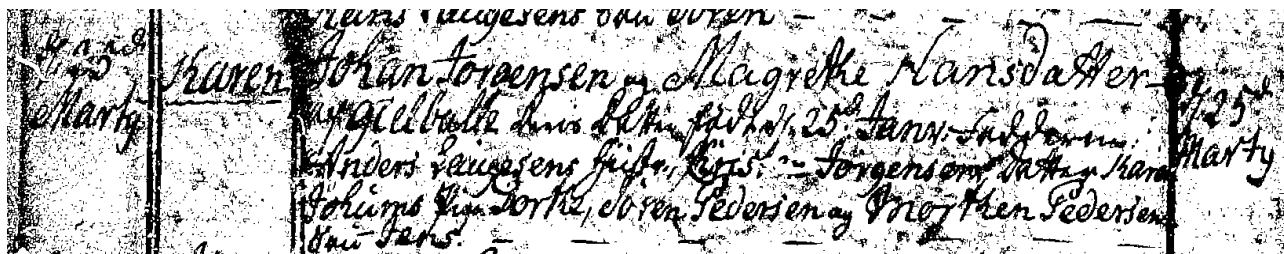 Hans Laugesens Søren
Marty
Karen
Johan Jørgensen og Magrethe Hansdatter
af Gielballe deris datter født d. 25d Janv: Fadderne
Anders Laugesens hustr. Jørgensens datter Karen
Johans Pige Dorthe, Søren Pedersen og Morthen Pedersens
Jens.
d. 25d
Marty